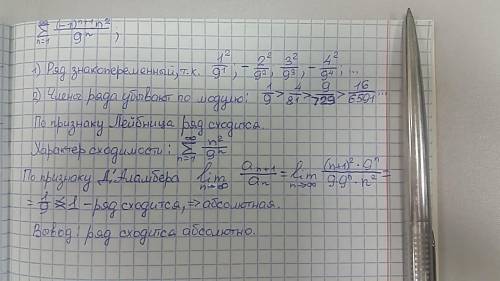 ∞∑n=1 (-1)^(n+1) n² / 9ⁿ ;
1) Ряд знакопеременный, т.к. 1²/9¹ ; - 2²/9² , 3²/9³ , - 4²/9⁴ , ...
2) Члены ряда убывают по модулю: 1/9 > 4/81 > 9/729 > 16/6591 ...
По признаку Лейбница ряд сходится.
Характер сходимости: ∞∑n=1 n²/9ⁿ
По признаку Д'Аламбера lim n→∞ aₙ₊₁/aₙ = lim n→∞ (n+1)² · 9ⁿ / 9·9ⁿ · n² =
= 1/9 < 1 - ряд сходится, ⇒ абсолютная.
Вывод: ряд сходится абсолютно.